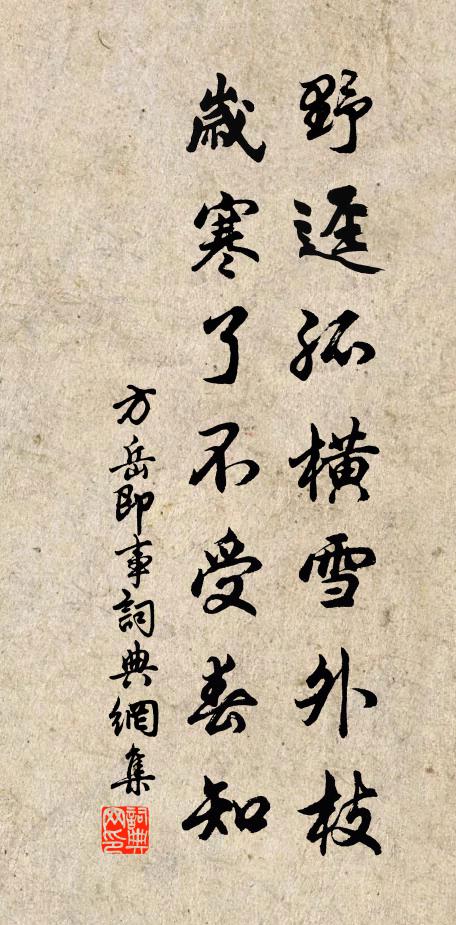 野逕孤橫雪外枝
歲寒了不受春知
方岳即事詞典網集
詞典网印